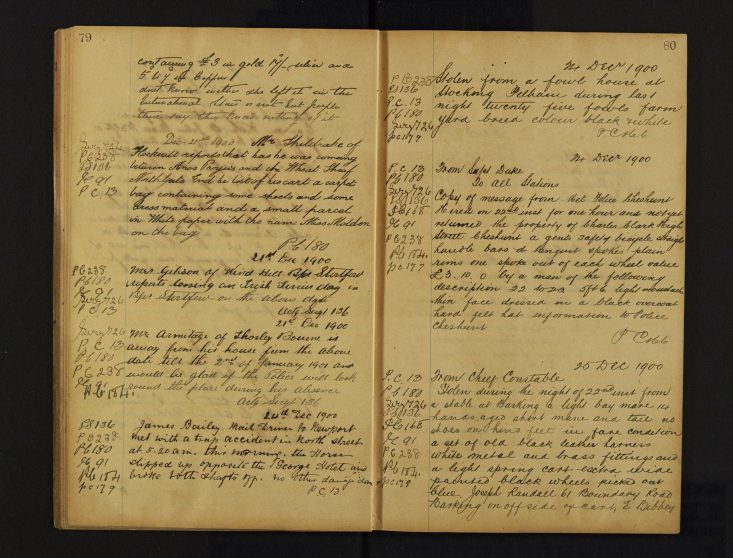 79
containing £3 in gold 17/- silver and
5. 4 in Copper
dont know wether she left it in the
International Stores or not but people
there say they know nothing of it
Dec 21st 1900 Mr Sheldrake of
Hockerill reports that has he was coming
between and the Wheat Sheaf
North Street Cord he lost of his cart a carpet
bag containing some and some
dress material and a small parcel
in White paper with the name Miss Meldon
on the bag
PC 180
21st Dec 1900
Mrs Gibson of Wind Hill Bps Stortford
reports loosing an Irish Terrier dog in
Bps Stortford on the above date
Actg Sergt 136
21st Dec 1900
Mr Armitage of Thorley Bourne is
away from his house from the above
date till the 2nd of January 1901 and
would be glad if the Police will look
round the place during his absence
Actg Sergt 136
24th Dec 1900
James Bailey Mail Driver to Newport
met with a trap accident in North Street
at 5-20 am this morning, the Horse
slipped up opposite the George Hotel and
broke both shafts no other damage done
PC 13
Serg 726
PC 238
PS 136
PC 91
P C 13
PC 238
PC 180
PC 91
Serg 726
PC 13
Serg 726
P C 13
PC 180
PC 238
PC 91
PC 154.
PS 136
PC 238
PC 180
PC 91
PC 154.
PC 179
80
24 Decr 1900
Stolen from a fowl house at
Stocking Pelham during last
night twenty five fowls farm
yard breed colour black & white
P Cobb
24 Decr 1900
From Supt Duke
To All Stations
Copy of message from Met Police Cheshunt
Hired on 22nd inst for one hour and not yet
returned the property of Charles Clark High
Street Cheshunt a gents safety bicycle straight
handle bars tangent spokes plain
rims one spoke out of each wheel value
£3. 10. 0 by a man of the following
description 22 to 23 5ft 6 light moustache
thin face dressed in a black overcoat
hard felt hat information to Police
Cheshunt
P Cobb
25 Dec 1900
From Chief Constable
Stolen during the night of 22nd inst from
a stable at Barking a light bay mare 14
hands aged short mane and tail no
shoes on hind feet in fare condition
a set of old black leather harness
white metal and brass fittings and
a light spring cart extra wide
painted black wheels picked out
blue Joseph Randall 61 Boundary Road
Barking on off side of cart, E Bibbey
P C 238
PS 136
P.C. 13
PC 180
Serg 726
PC 179
P.C. 13
PC 180
Serg 726
PS 136
PC 168
PC 91
PC 238
PC 154.
PC 179
P.C. 13
PC 180
Serg 726
PS 136
PC 168
PC 91
PC 238
PC 154.
PC 179